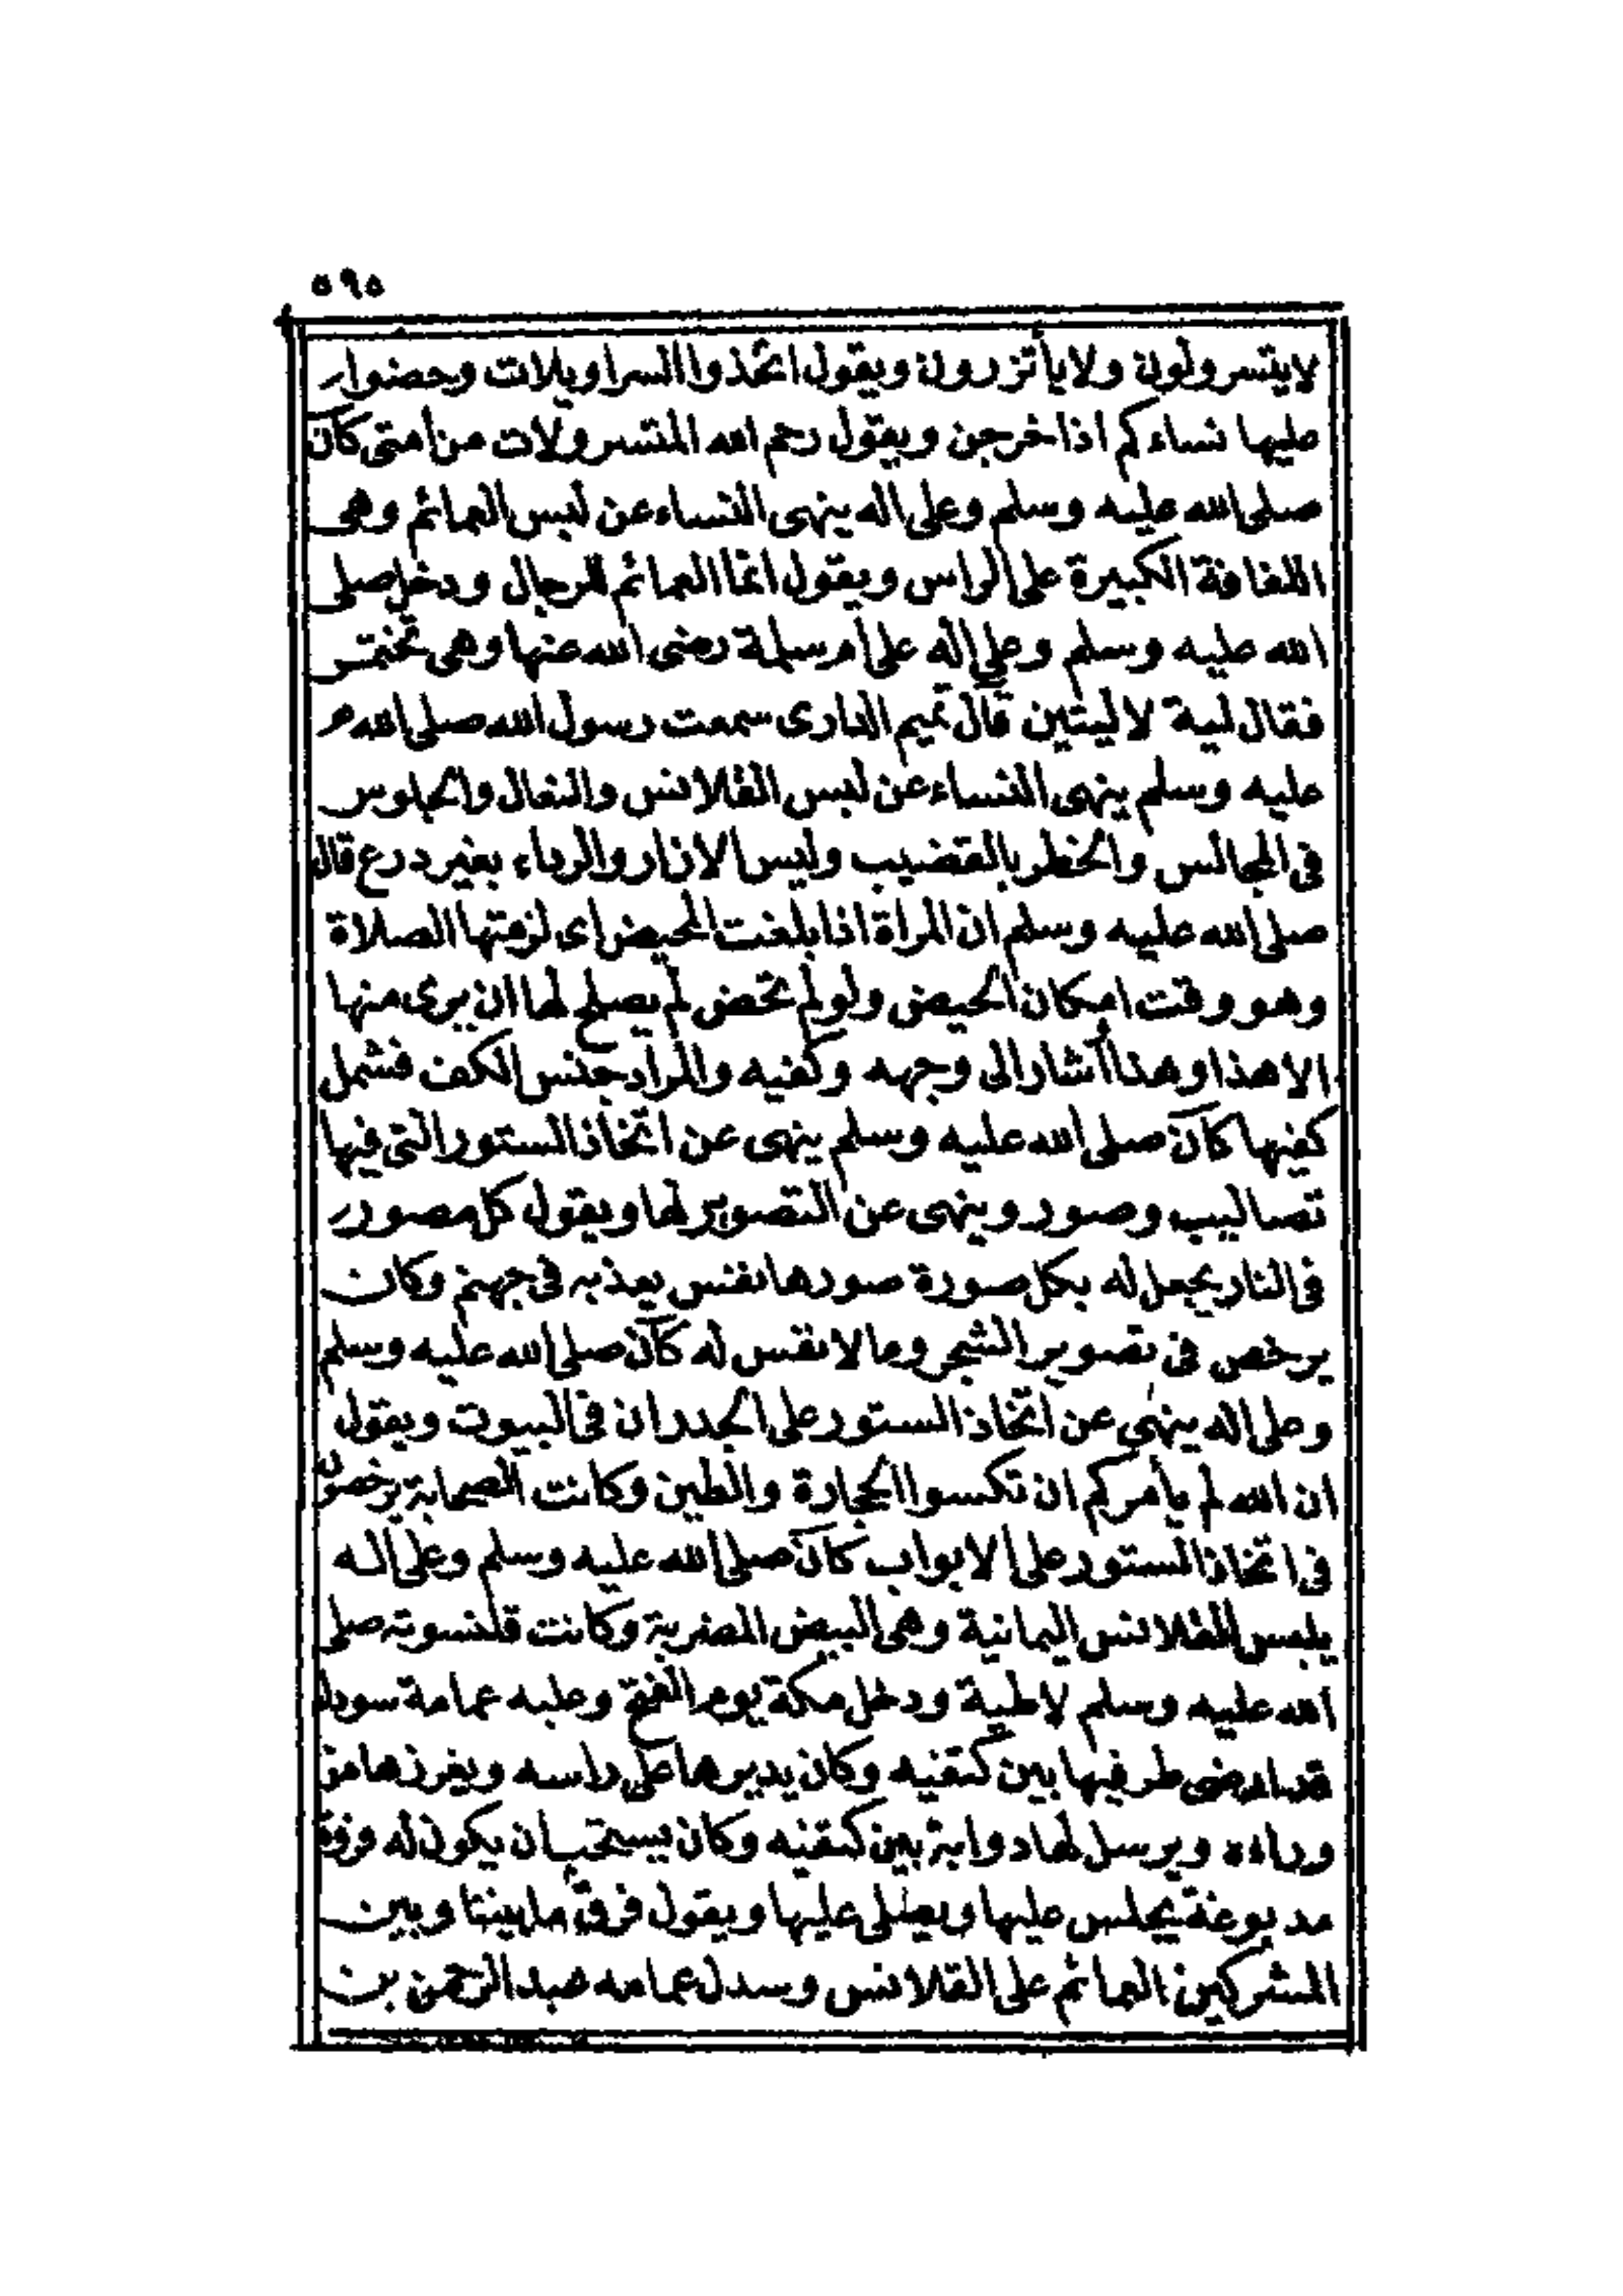 ٥٩٥
لا يتسرولون ولا يأتزرون ويقول اتخذوا السراويلات وحصنوا
عليها نساءكم اذا خرجن ويقول رحم الله المتسرولات من أمتي كان
صلى الله عليه وسلم وعلى اله ينهى النساء عن لبس العمائم وهى
اللفافة الكبيرة على الراس ويقول انما العمائم للرجال ودخل صلى
الله عليه وسلم وعلى اله على أم سلمة رضى الله عنها وهى تختمر
فقال لية لا ليتين قال تميم الدارى سمعت رسول الله صلى الله
عليه وسلم ينهى النساء عن لبس القلانس والنعال والجلوس
فى المجالس والخطر بالقضيب ولبس الازار والرداء بغير درع قال
صلى الله عليه وسلم ان المرأة اذا بلغت المحيض اى لزمتها الصلاة
وهو وقت امكان الحيض ولو لم تحض لم يصلح لها ان يرى منها
الا هذا وهذا أشار الى وجهه وكفيه والمراد جنس الكف فشمل
كفيها كان صلى الله عليه وسلم ينهى عن اتخاذ الستور التى فيها
تصاليب وصور وينهى عن التصوير لها ويقول كل مصور
فى النار يجعل له بكل صورة صورها نفس يعذبه فى جهنم وكان
يرخص فى تصوير الشجر وما لا نفس له كان صلى الله عليه وسلم
وعلى اله ينهى عن اتخاذ الستور على الجدران فى البيوت ويقول
ان الله لم يأمركم ان تكسوا الحجارة والطين وكانت الصحابة يرخصون
فى اتخاذ الستور على الابواب كان صلى الله عليه وسلم وعلى اله
يلبس القلانس اليمانية وهى البيض المضربة وكانت قلنسوته صلى
الله عليه وسلم لاطية ودخل مكة يوم الفتح وعليه عمامة سوداء
قد ارخى طرفيها بين كتفيه وكان يديرها على راسه ويغرزها من
وراءه ويرسل لها دوابة بين كتفيه وكان يستحب ان يكون له فروة
مدبوغة يجلس عليها ويصلى عليها ويقول فرق ما بيننا وبين
المشركين العمائم على القلانس وسدل عمامه عبد الرحمن بن